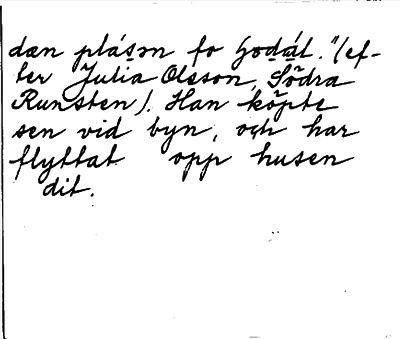 dan plásọn fo Gọdạ́l."(ef-
ter Julia Olsson, Södra
Runsten). Han köpte
sen vid byn, och har
flyttat opp husen
dit.